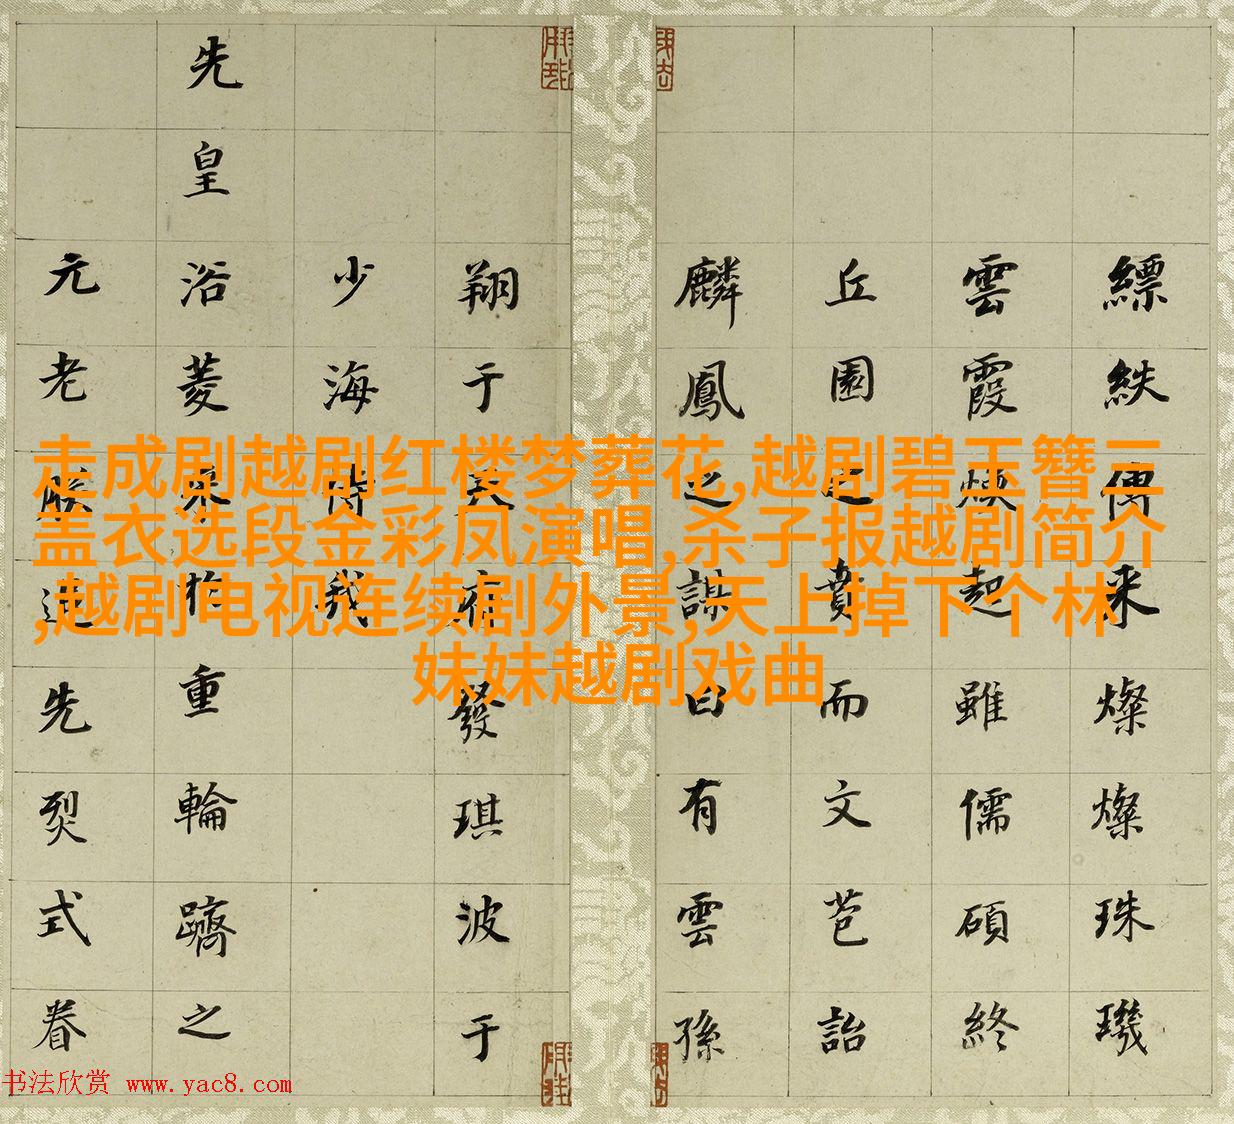 走成剧越剧红楼梦葬花,越剧碧玉簪三
盖衣选段金彩凤演唱,杀子报越剧简介
,越剧电视连续剧外景,天上掉下个林
妹妹越剧戏曲
縹紩傳来燦燦珠璣
雲霞煥起雖儒碩終
丘園之賁而文苞詒
麟鳳之謀曰有雲孫
翔于天府發琪波于
少海侍我
先皇浴菱重輪躋之
元老先烈式眷
书法欣赏 www.yac8.com